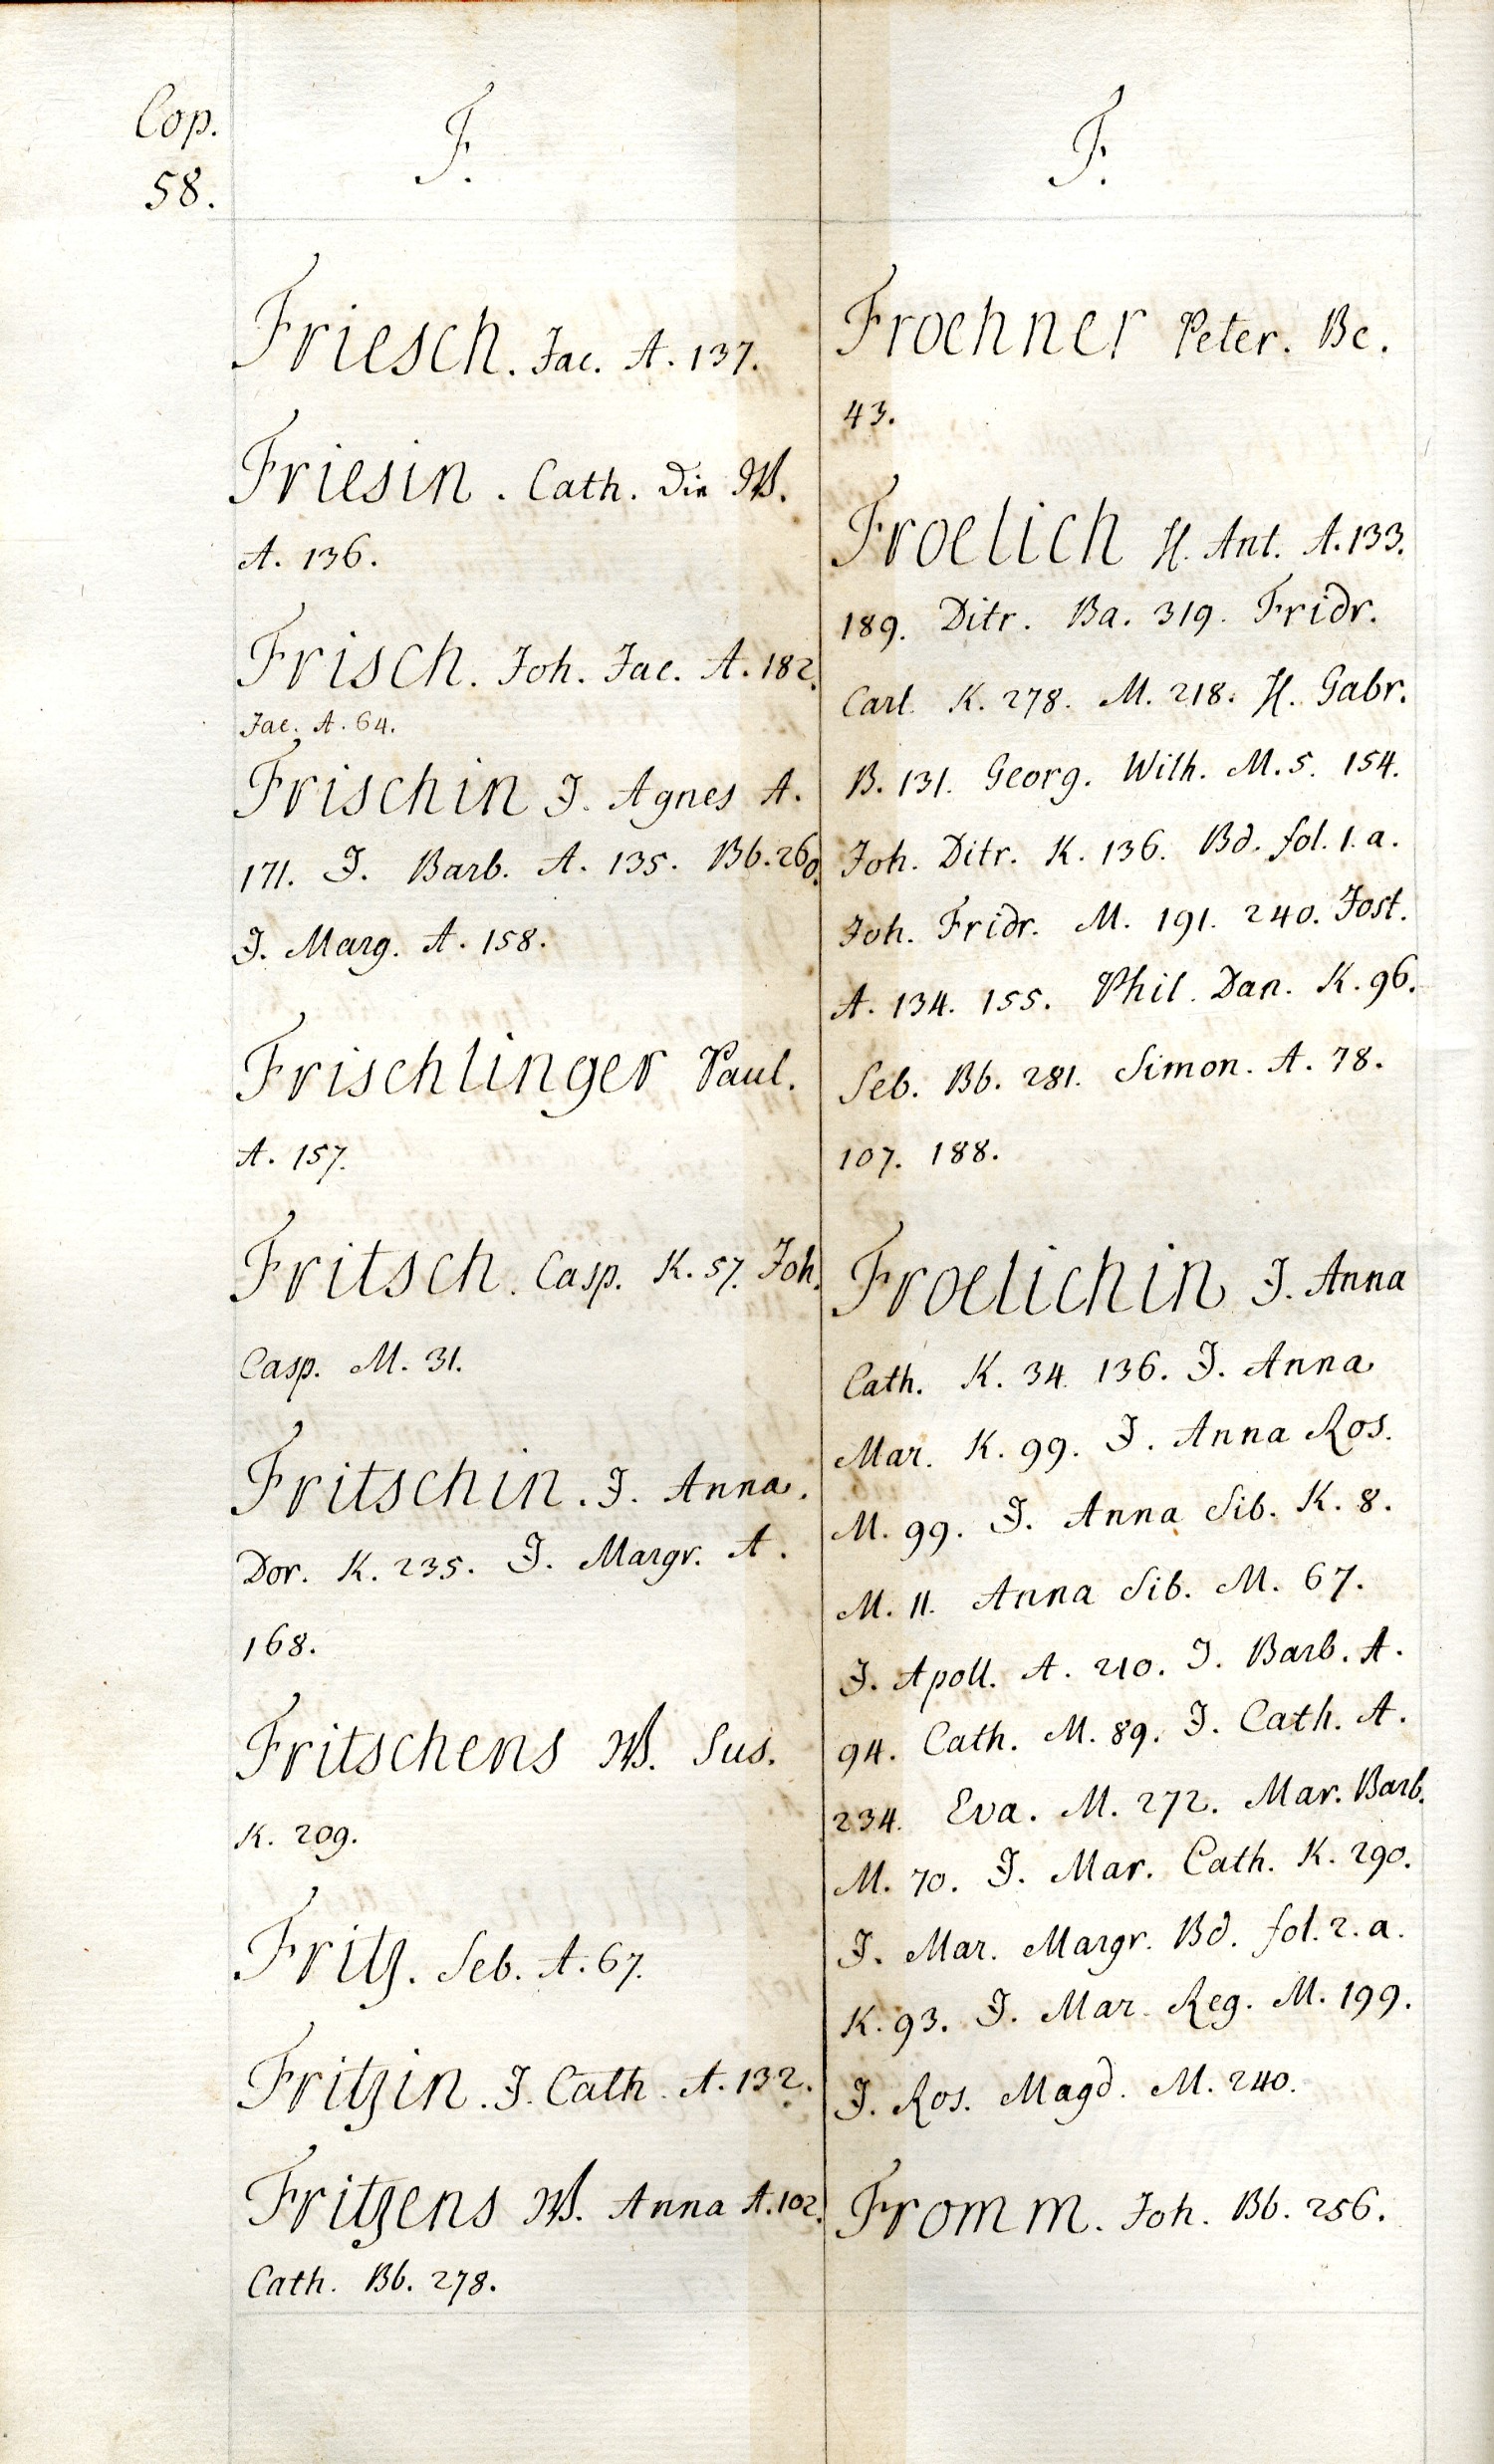 Cop.
58.
F.
Friesch. Jac. A. 137.
Friesin. Cath. die W.
A. 136.
Frisch. Joh. Jac. A. 182.
Jac. A. 64.
Frischin J. Agnes A.
171. J. Barb. A. 135. Bb. 260.
J. Marg. A. 158.
Frischlinger Paul.
A. 157.
Fritsch. Casp. K. 57. Joh.
Casp. M. 31.
Fritschin. J. Anna.
Dor. K. 235. J. Margr. A.
168.
Fritschens W. Sus.
K. 209.
Fritz. Seb. A. 67.
Fritzin. J. Cath. A. 132.
Fritzens W. Anna A. 102.
Cath. Bb. 278.
F.
Froehner Peter. Bc.
43.
Froelich H. Ant. A. 133.
189. Ditr. Ba. 319. Fridr.
Carl. K. 278. M. 218. H. Gabr.
B. 131. Georg. Wilh. M. 5. 154.
Joh. Ditr. K. 136. Bd. fol. 1. a.
Joh. Fridr. M. 191. 240. Jost.
A. 134. 155. Phil. Dan. K. 96.
Seb. Bb. 281. Simon. A. 78.
107. 188.
Froelichin J. Anna
Cath. K. 34. 136. J. Anna
Mar. K. 99. J. Anna Ros.
M. 99. J. Anna Sib. K. 8.
M. 11. Anna Sib. M. 67.
J. Apoll. A. 210. J. Barb. A.
94. Cath. M. 89. J. Cath. A.
234. Eva. M. 272. Mar. Barb.
M. 70. J. Mar. Cath. K. 290.
J. Mar. Margr. Bd. fol. 2. a.
K. 93. J. Mar. Reg. M. 199.
J. Ros. Magd. M. 240.
Fromm. Joh. Bb. 256.